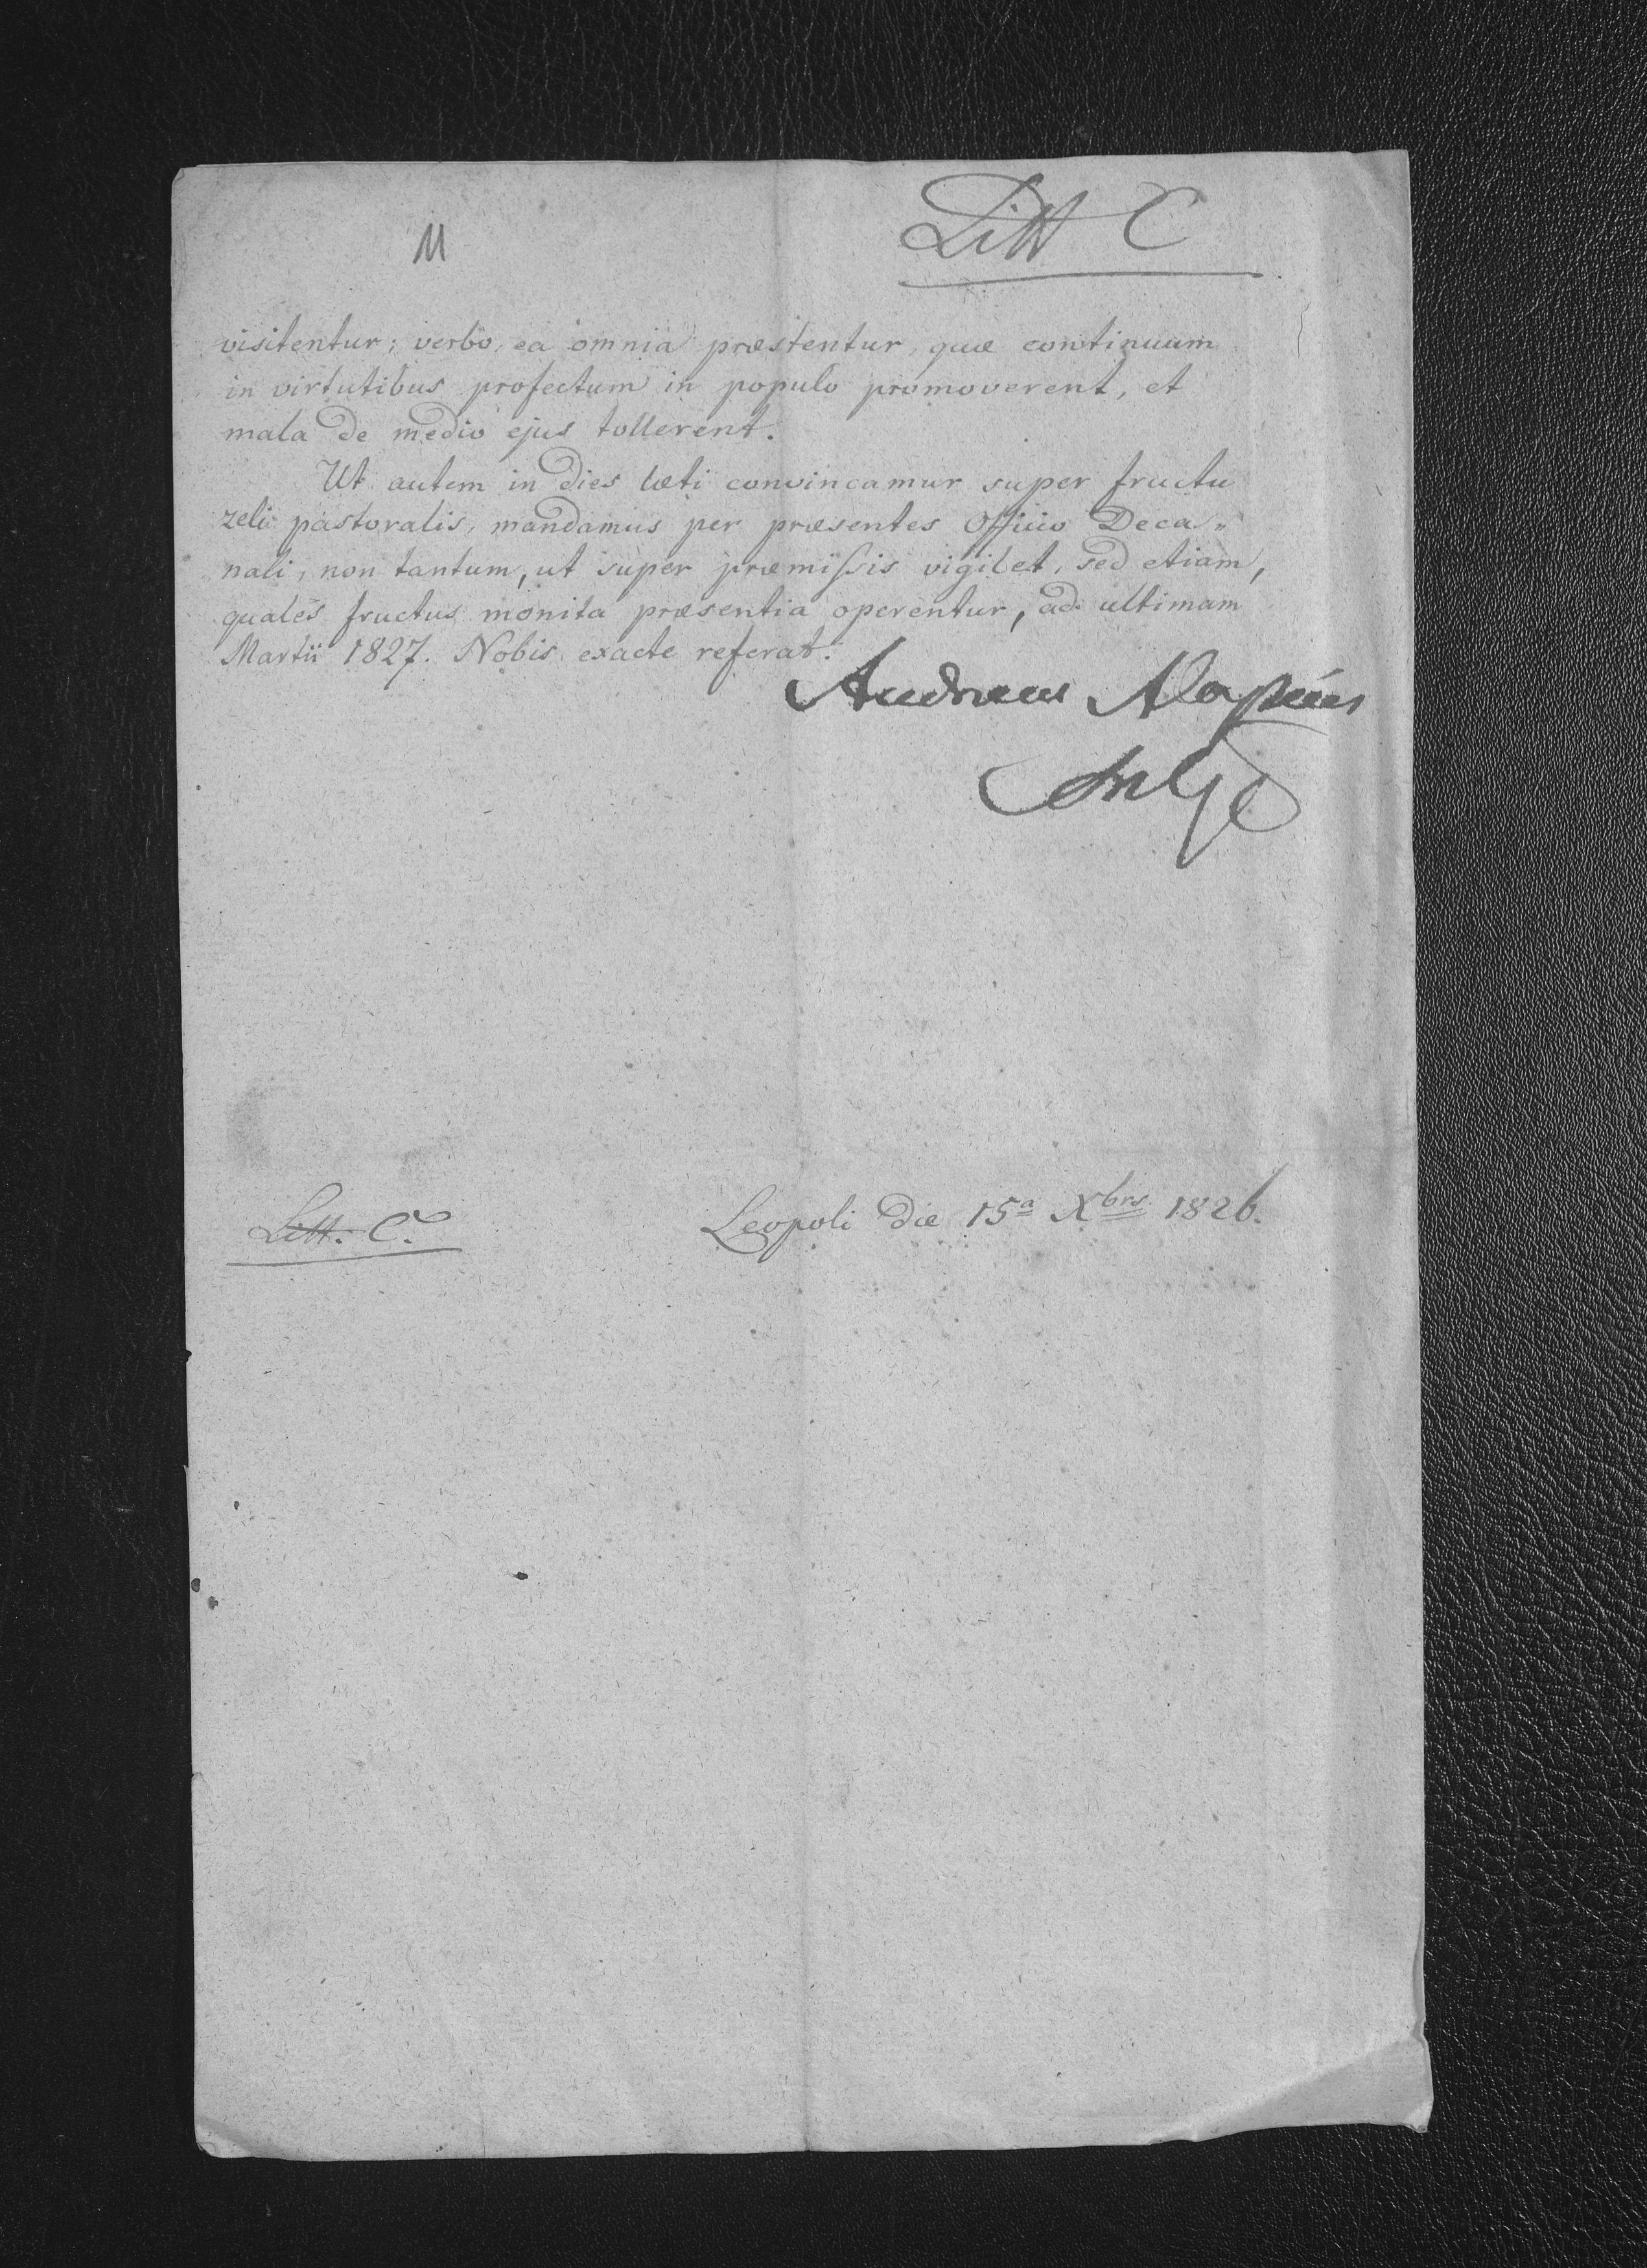 11
Litt C
visitentur; verbo, ea omnia præstentur, quæ continuum
in virtutibus profectum in populo promoverent, et
mala de medio ejus tollerent.
Ut autem in dies læti convincamur super fructu
zeli pastoralis, mandamus per præsentes Officio Deca„
nali, non tantum, ut super præmiſsis vigilet, sed etiam,
quales fructus monita præsentia operentur, ad ultimam
Martii 1827. Nobis exacte referat.
Andreas Aloysius
Litt. C.
Leopoli die 15ª Xbris 1826.